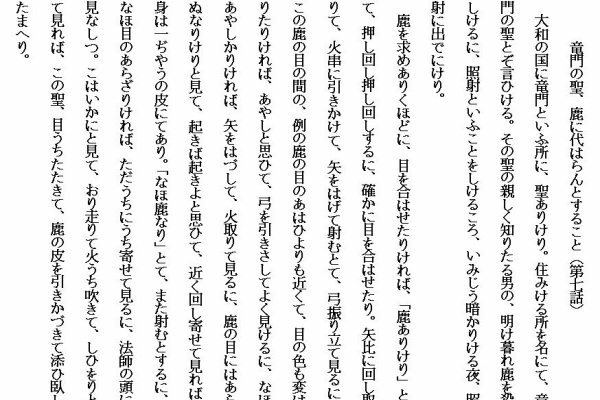 竜門の聖、鹿に代はらんとすること（第七話）
大和の国に竜門といふ所に、聖ありけり。住みける所を名にて、竜
門の聖とぞ言ひける。その聖の親しく知りたる男の、明け暮れ鹿を
しけるに、照射といふことをしけるころ、いみじう暗かりける夜、照
射に出でにけり。
鹿を求めありくほどに、目を合はせたりければ、「鹿ありけり」と
て、押し回し押し回しするに、確かに目を合はせたり。矢比に回し
りて、火串に引きかけて、矢をはげて射むとて、弓振り立て見るに
この鹿の目の間の、例の鹿の目のあはひよりも近くて、目の色も変は
りたりければ、あやしと思ひて、弓を引きさしてよく見けるに、なほ
あやしかりければ、矢をはづして、火取りて見るに、鹿の目にはあら
ぬなりけりと見て、起きば起きよと思ひて、近く回し寄せて見れば
身は一ぢやうの皮にてあり。「なほ鹿なり」とて、また射むとするに、
なほ目のあらざりければ、ただうちにうち寄せて見るに、法師の頭に
見なしつ。こはいかにと見て、おり走りて火うち吹きて、しひをりと
て見れば、この聖、目うちたたきて、鹿の皮を引きかづきて添ひ臥し
たまへり。